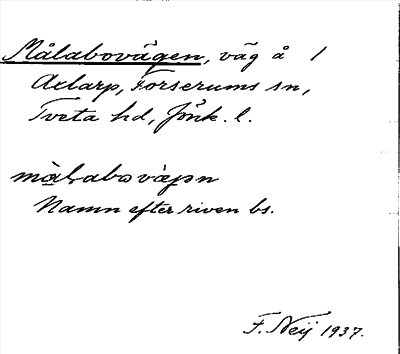 Målabovägen, väg å 1
Axlarp, Forserums sn,
Tveta hd, Jönk. l.
Namn efter riven bs.
F. Neij 1937.